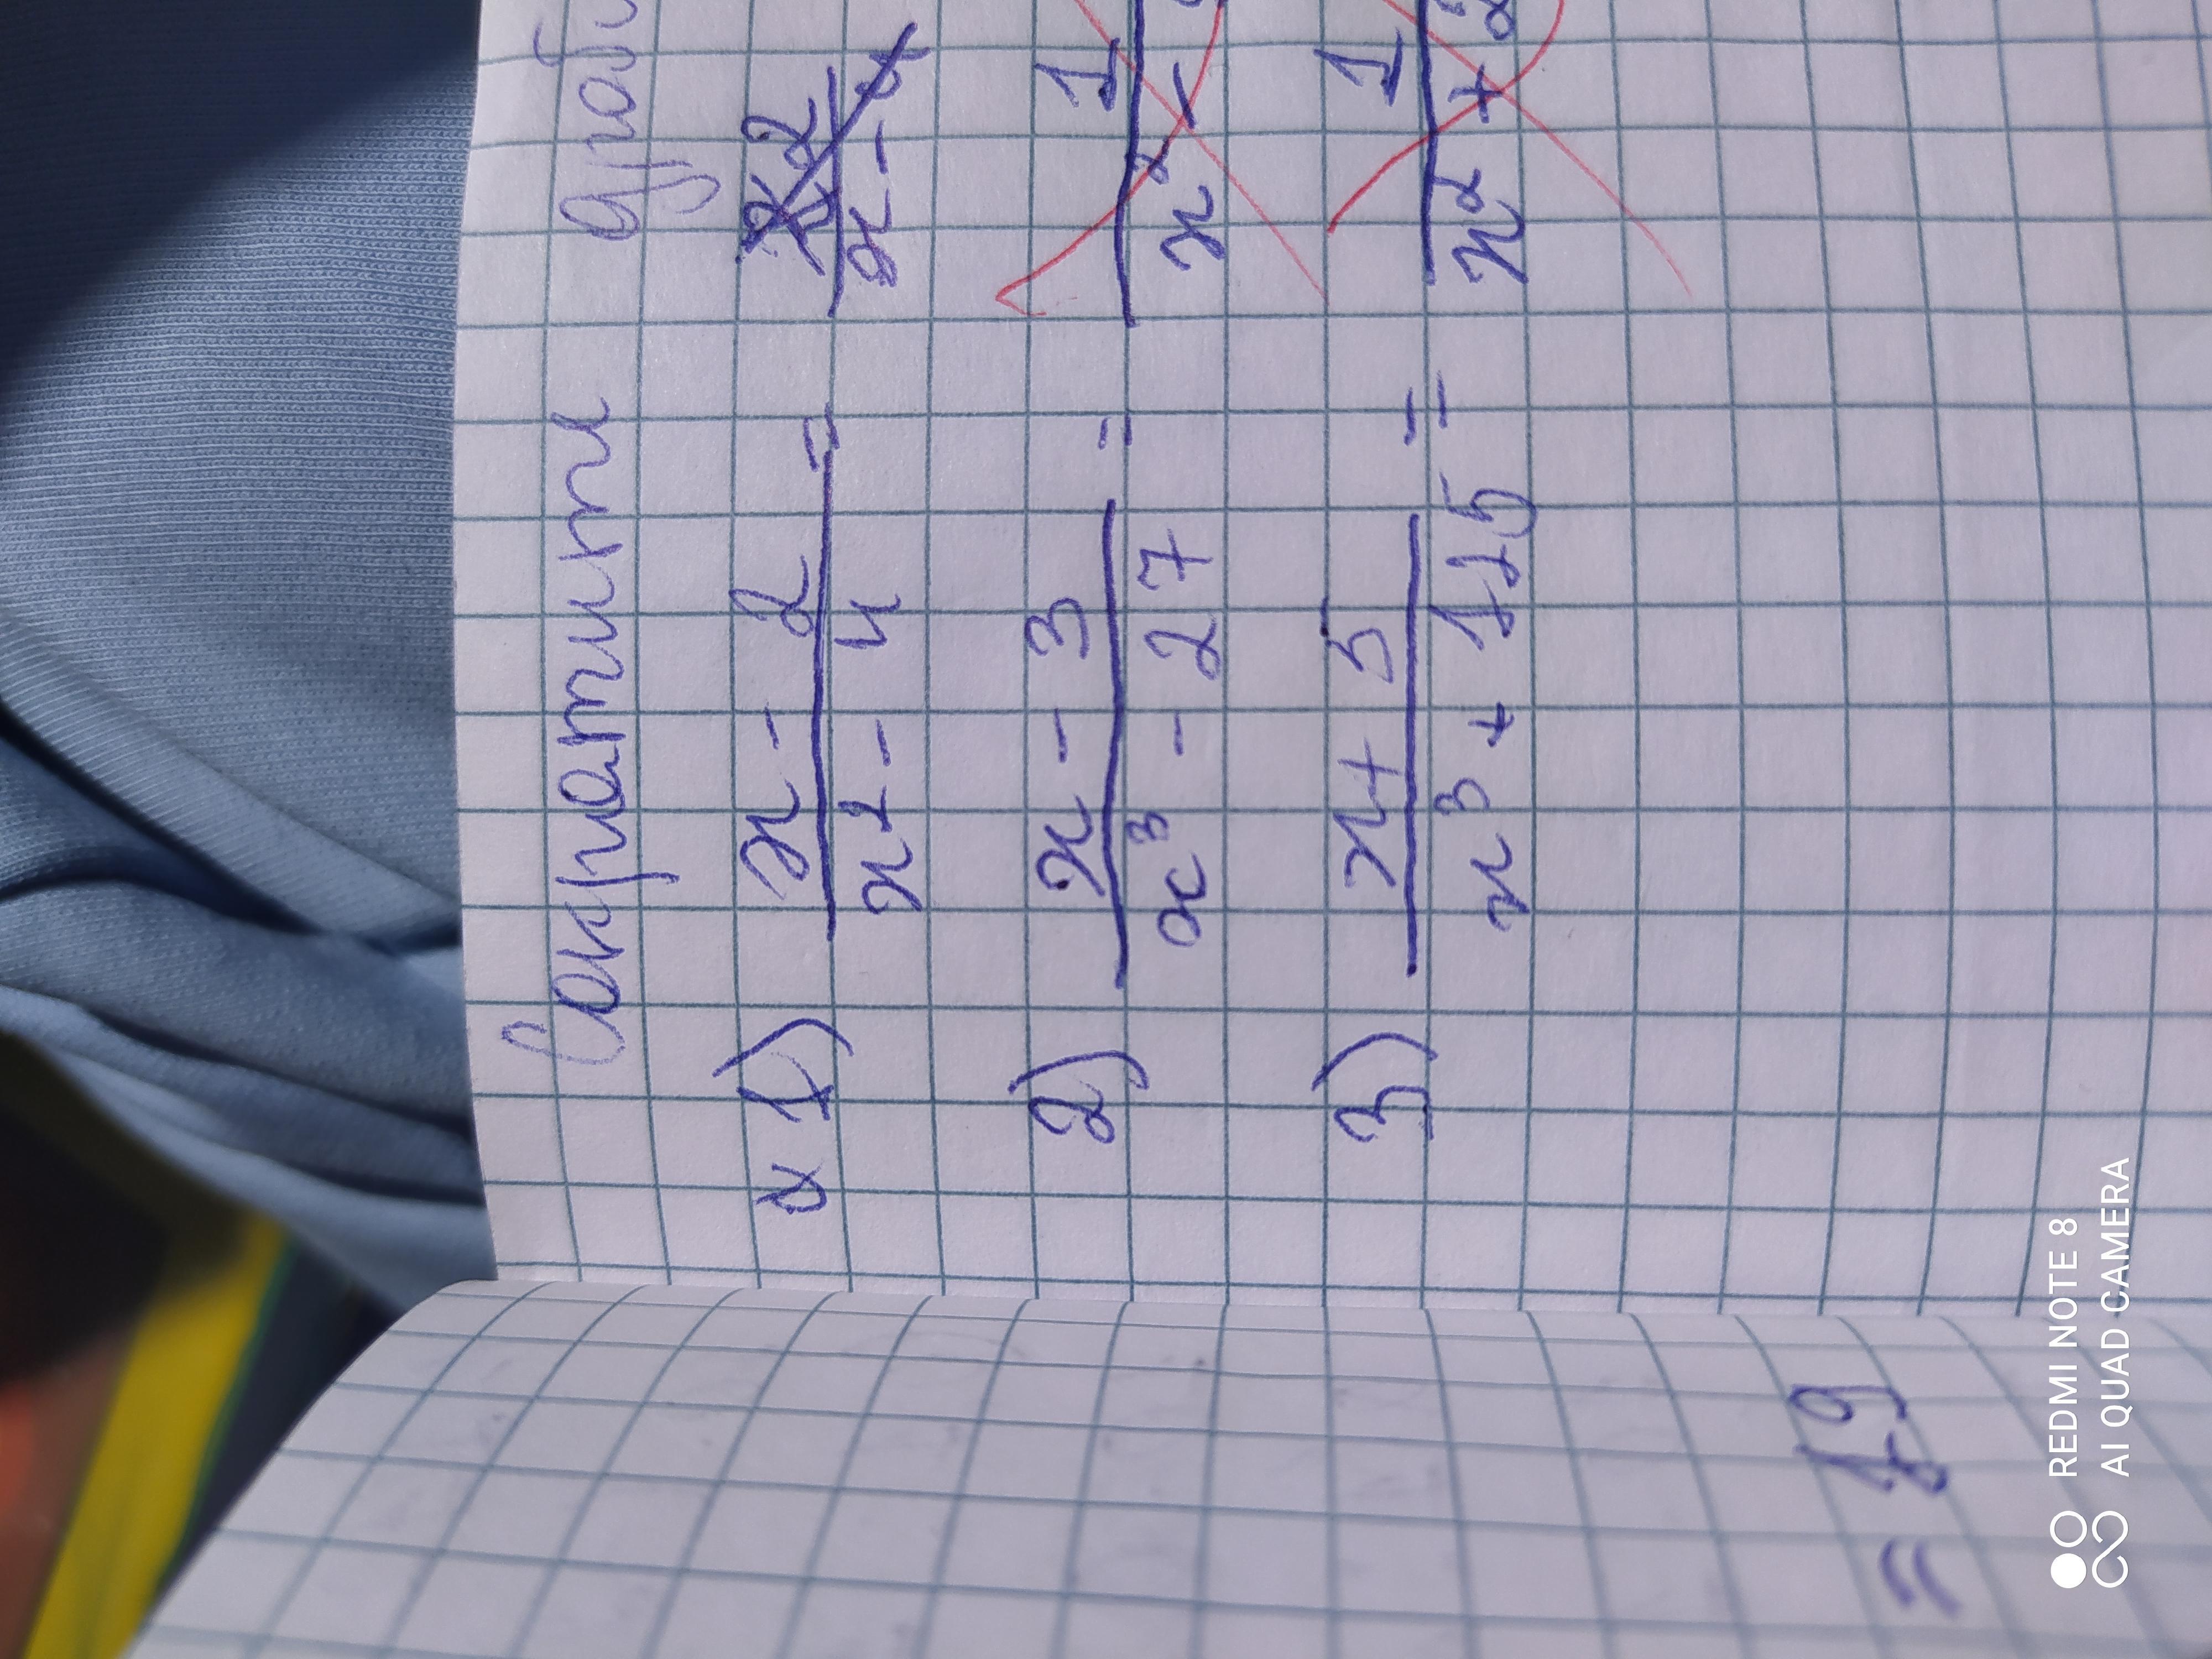 Сократити дроби
N 1) x - 2 / x² - 4 =
2) x - 3 / x³ - 27 = 1 / x² -
3) x + 5 / x³ + 125 = 1 / x² + 2
= 19
REDMI NOTE 8
AI QUAD CAMERA